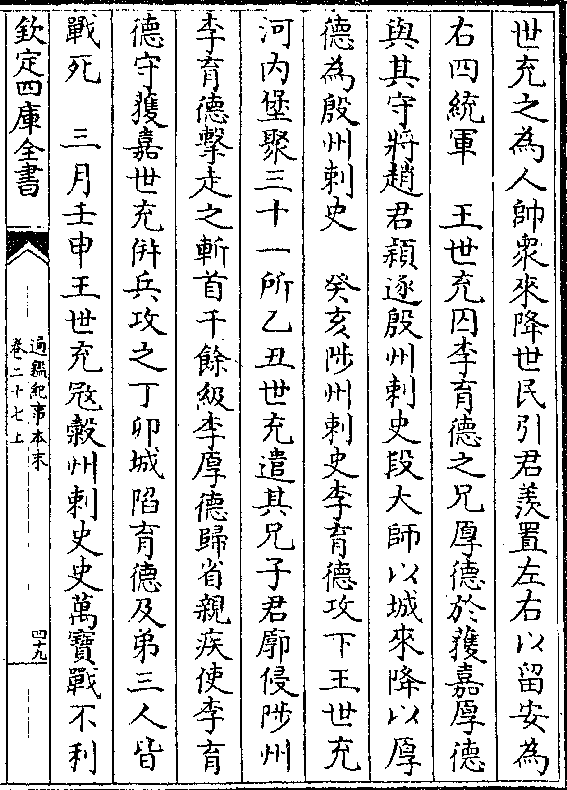 世充之為人帥衆來降世民引君羨置左右以留安為
右四統軍　王世充囚李育德之兄厚德於獲嘉厚德
與其守將趙君潁逐殷州刺史段大師以城來降以厚
德為殷州刺史　癸亥陟州刺史李育德攻下王世充
河内堡聚三十一所乙丑世充遣其兄子君廓侵陟州
李育德擊走之斬首千餘級李厚德歸省親疾使李育
德守獲嘉世充併兵攻之丁卯城陷育德及弟三人皆
戰死　三月壬申王世充宼糓州刺史史萬寶戰不利
欽定四庫全書
通鑑紀事本末
卷二十七上
四十九